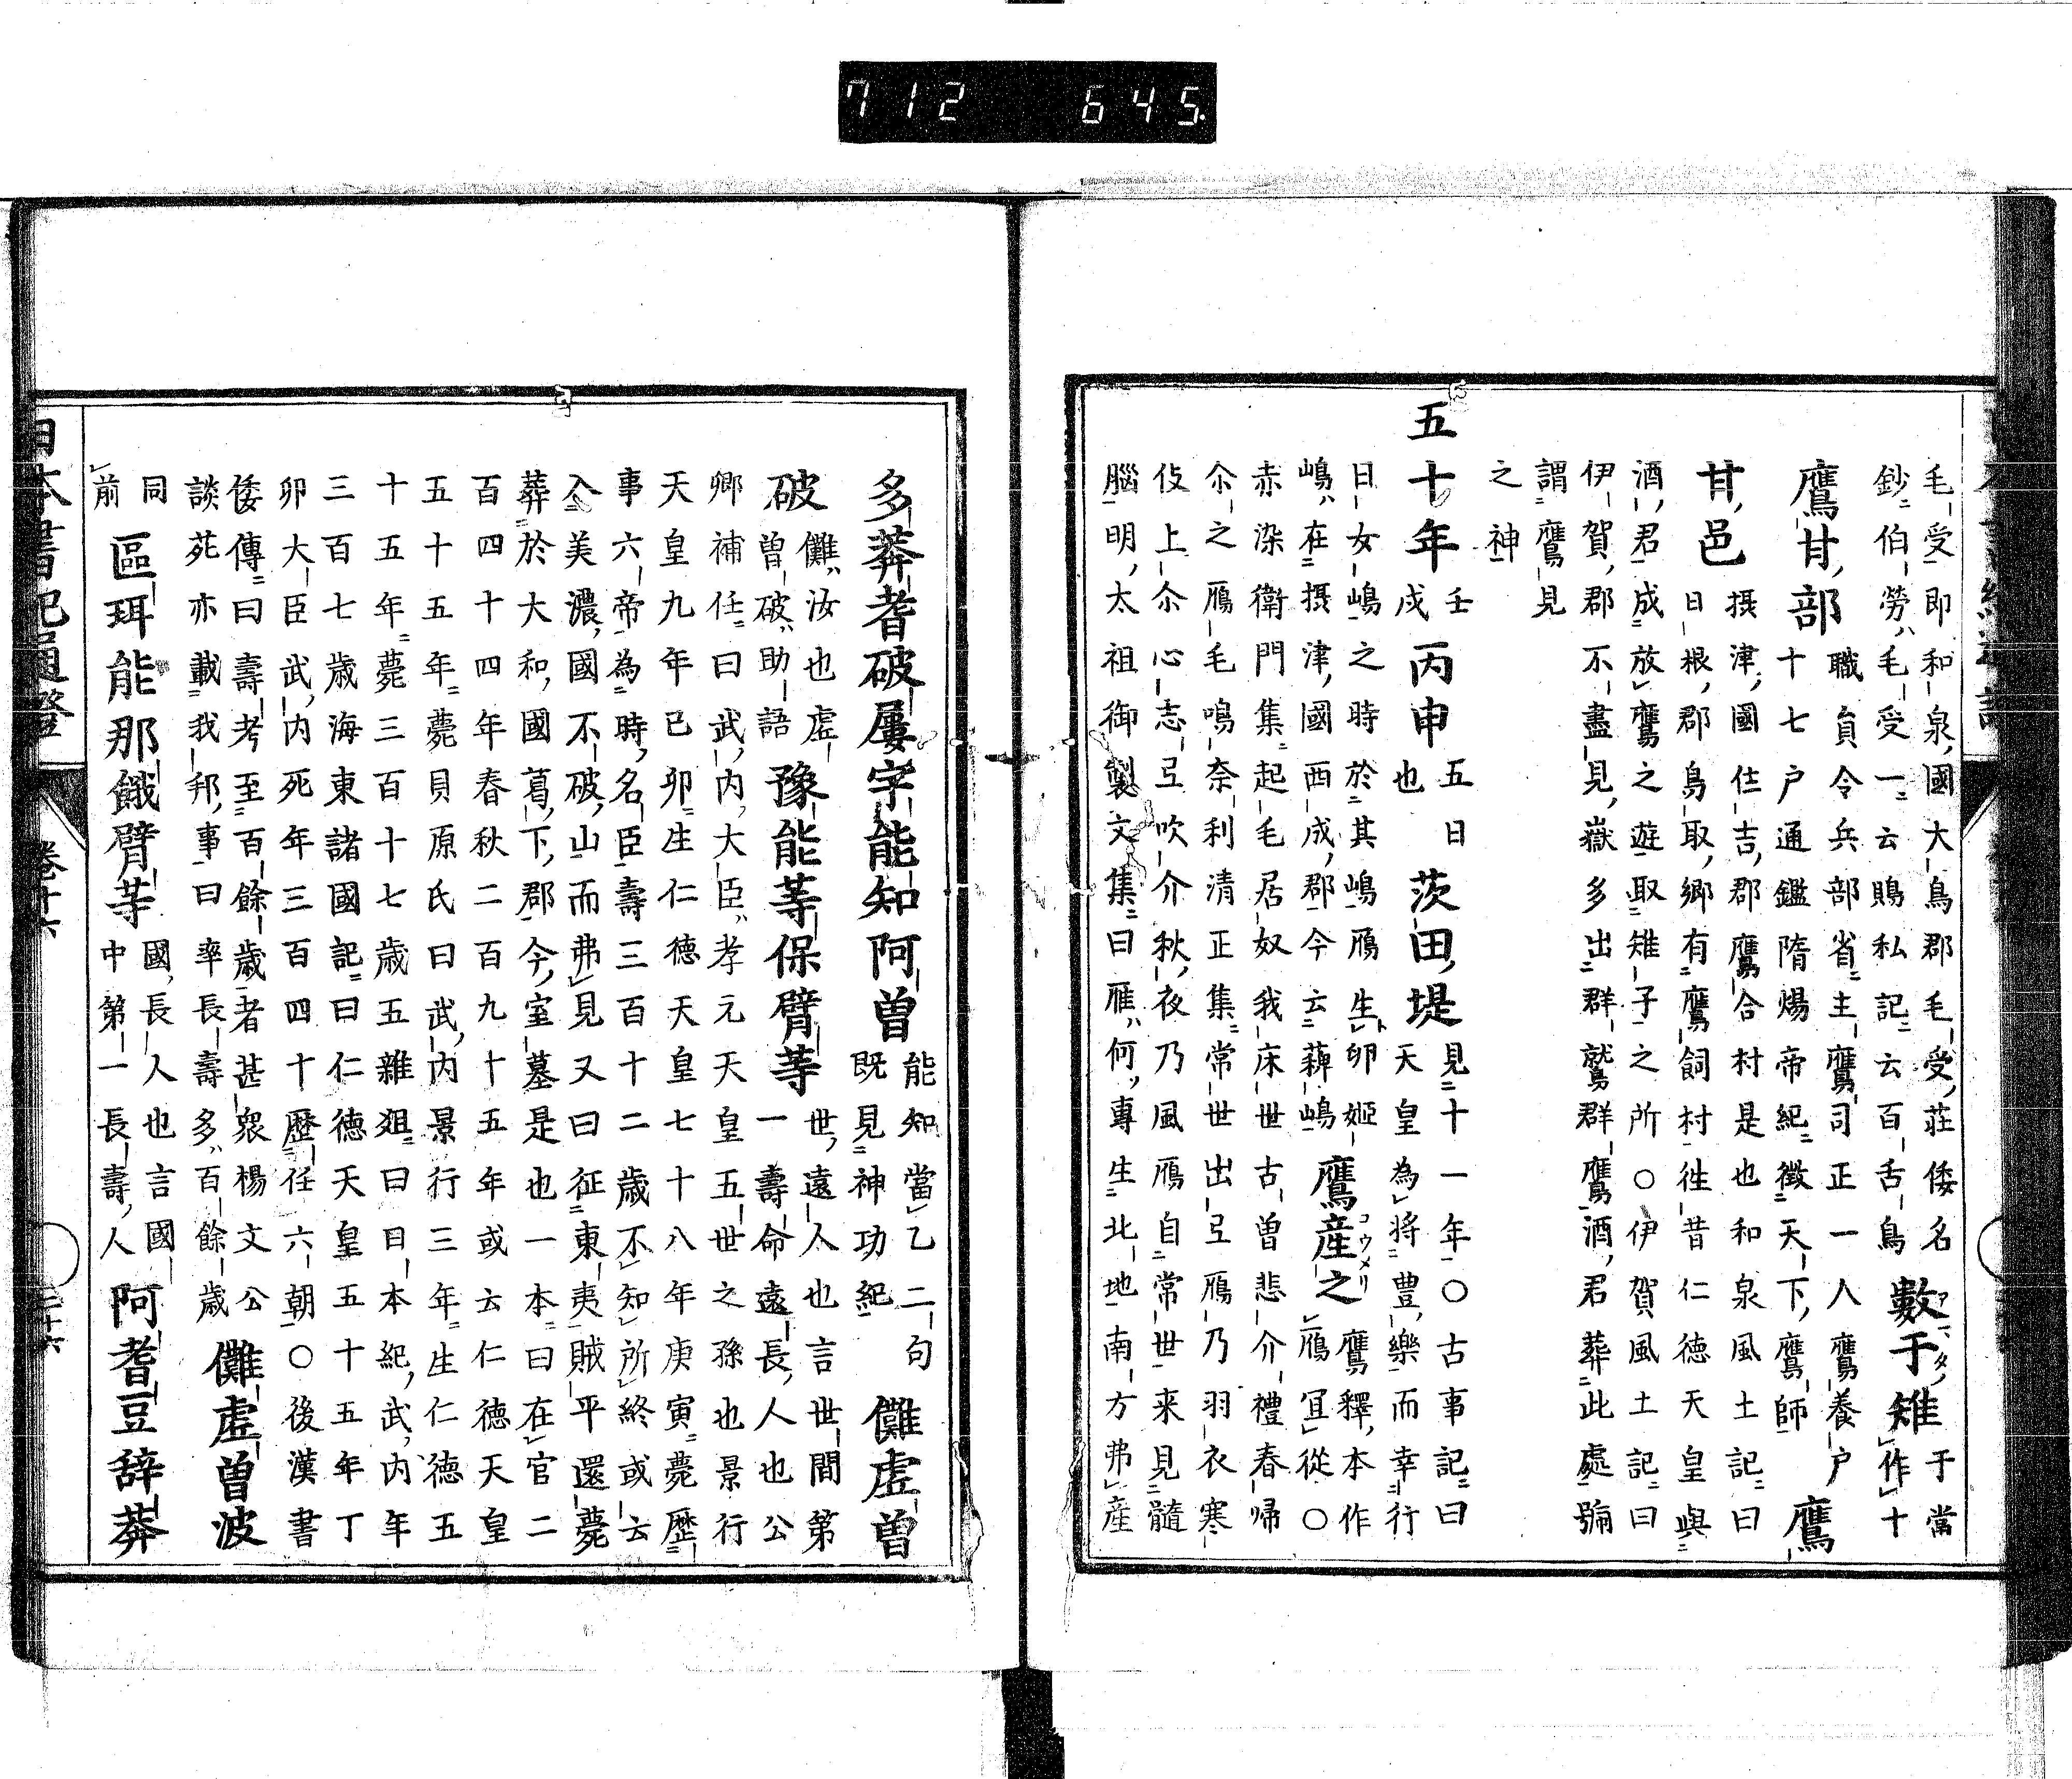 712 645.
毛受即和泉國大鳥郡毛受荘倭名
鈔伯勞毛受一云鵙私記云百舌鳥
數于雉
于當
作十
鷹甘部
職員令兵部省主鷹司正一人鷹養戸
十七戸通鑑隋煬帝紀徴天下鷹師
鷹
甘邑
摂津國住吉郡鷹合村是也和泉風土記曰
日根郡鳥取郷有鷹飼村徃昔仁徳天皇與
酒君成放鷹之遊取雉子之所○伊賀風土記曰
伊賀郡不盡見嶽多出群鷲群鷹酒君葬此處號
謂鷹見
之神
五十年
壬
戌
丙申
五日
也
茨田堤
見十一年○古事記曰
天皇為將豊樂而幸行
日女嶋之時於其嶋鴈生卵姫
嶋在摂津國西成郡今云薭嶋
鷹産之
コウメリ
鷹釋本作
鴈宜從○
赤染衛門集起毛居奴我床世古曽悲介禮春帰
尒之鴈毛鳴奈利清正集常世出弖鴈乃羽衣寒
伎上尒心志弖吹介秋夜乃風鴈自常世来見髓
腦明太祖御製文集曰雁何專生北地南方弗産
多莽耆破屢宇能知阿曽
能知當乙二句
既見神功紀
儺虚曽
破
儺汝也虚
曽破助語
豫能等保臂等
世遠人也言世間第
一壽命遠長人也公
卿補任曰武内大臣孝元天皇五世之孫也景行
天皇九年已卯生仁徳天皇七十八年庚寅薨歴
事六帝為時名臣壽三百十二歳不知所終或云
入美濃國不破山而弗見又曰征東夷賊平還薨
葬於大和國葛下郡今室墓是也一本曰在官二
百四十四年春秋二百九十五年或云仁徳天皇
五十五年薨貝原氏曰武内景行三年生仁徳五
十五年薨三百十七歳五雜爼曰日本紀武内年
三百七歳海東諸國記曰仁徳天皇五十五年丁
卯大臣武内死年三百四十歴任六朝○後漢書
倭傳曰壽考至百餘歳者甚衆楊文公
談苑亦載我邦事曰率長壽多百餘歳
儺虚曽波
同
前
區珥能那餓臂等
國長人也言國
中第一長壽人
阿耆豆辞莽
卷十六
二十六